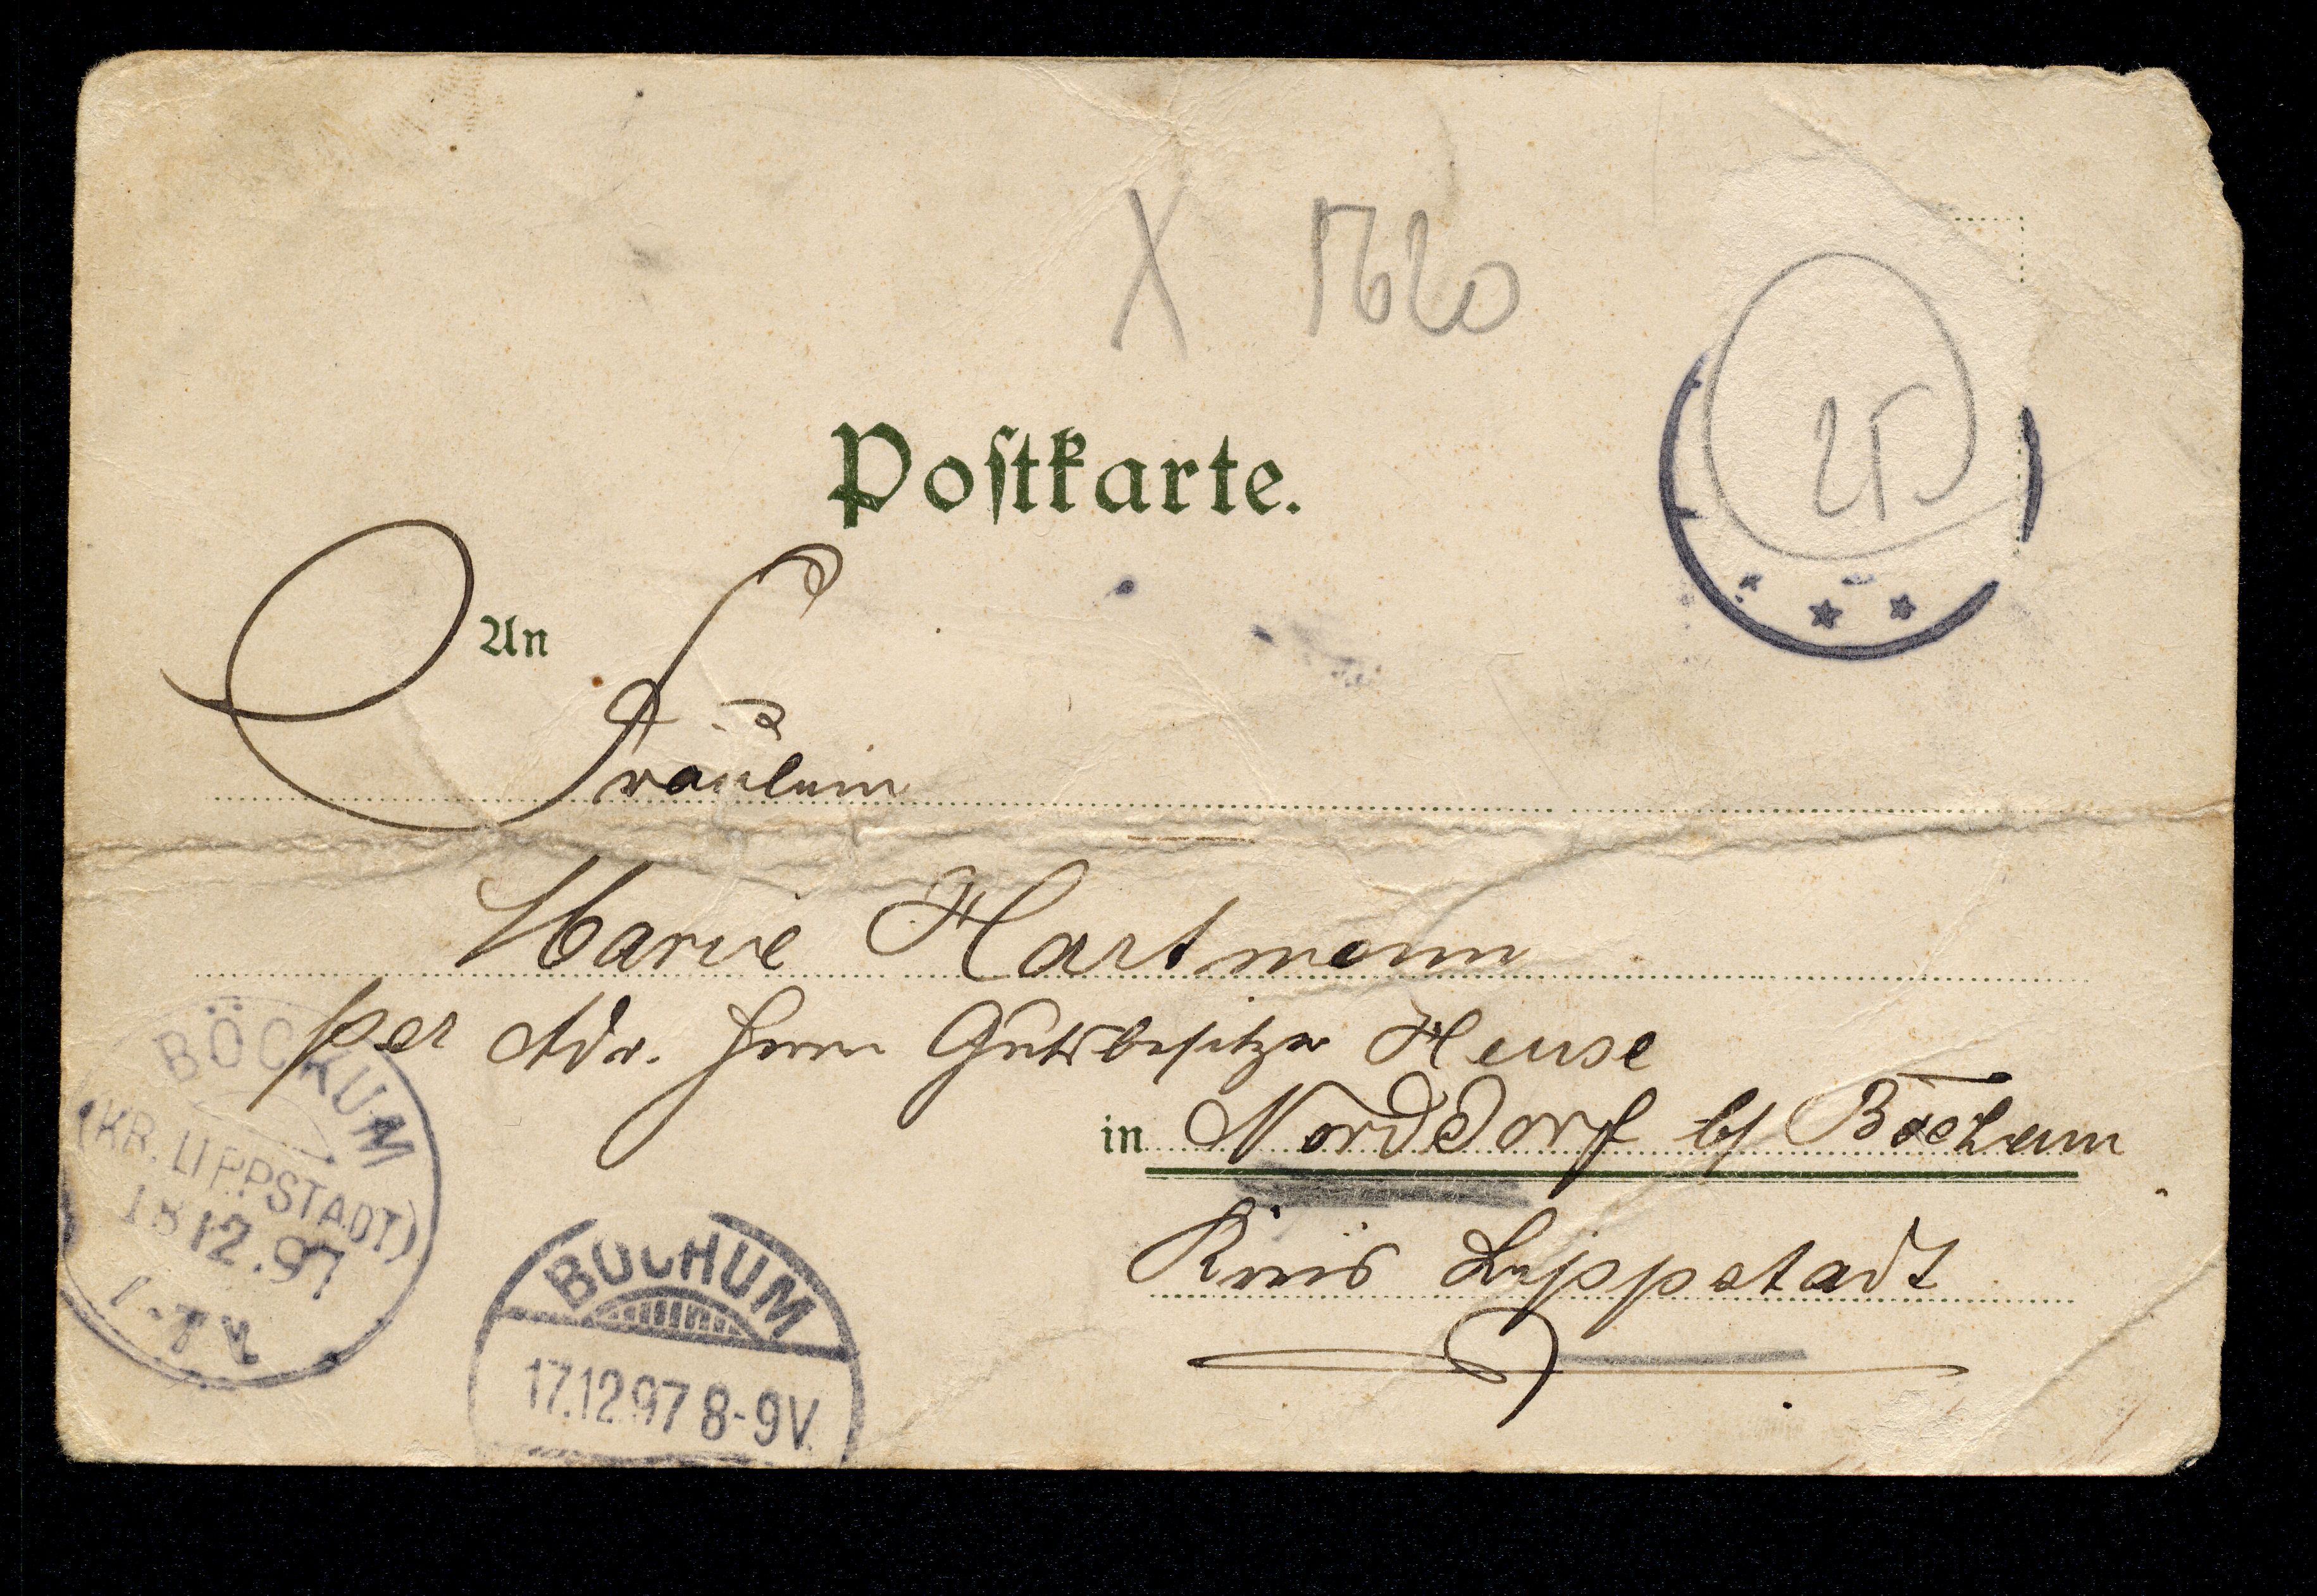 X 1620
25
Postkarte.
An
Fräulein
Marie Hartmann
per Adr. Herrn Gutsbesitzer Hense
in Norddorf b/ Böckum
Kreis Lippstadt
BÖCKUM
(KR. LIPPSTADT)
18 12.97
BOCHUM
17.12.97 8-9V.